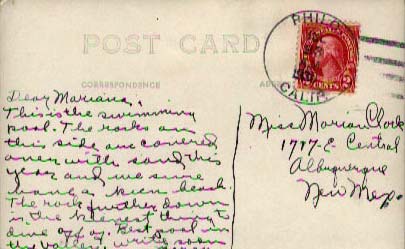 POST CARD
CORRESPONDENCE
PHILO
CALIF.
CENTS
Dear Mariana,
This is the swimming
pool. The rocks on
this side are covered
over with sand this
year and we sure
have a keen beach.
The rock further down
is the keenest thing to
dive off of. Best pool in
the valley. write soon
Miss Marian Clark
1717-E Central
Albuquerque
New Mex.